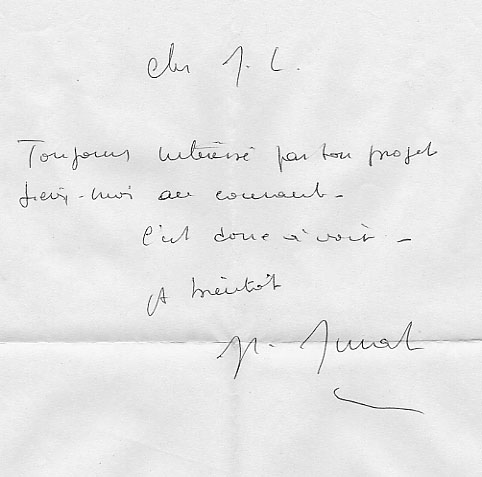 Cher J. L.
Toujours intéressé par ton projet
tiens-moi au courant -
C'est donc à voir -
A bientôt